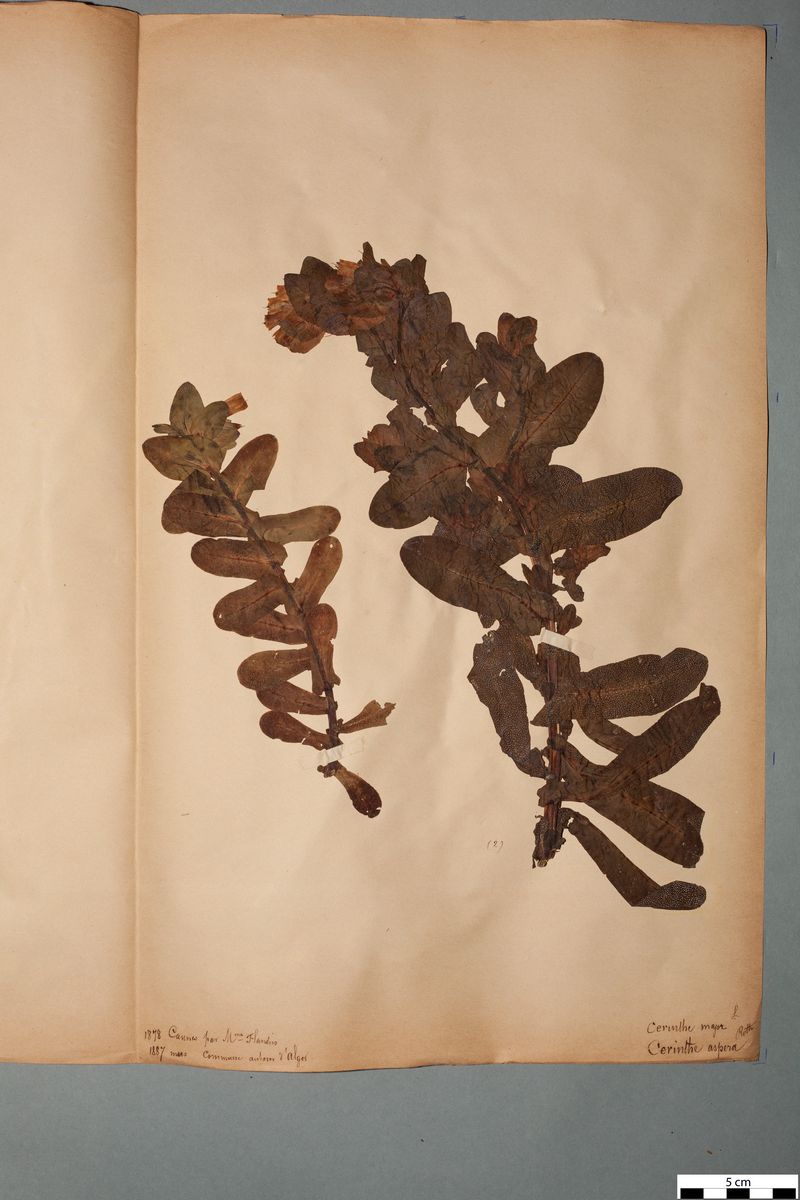 (2)
1878 Cannes par Mme Flandin
1887 mars Commune autour d'Alger
Cerinthe major L
Cerinthe aspera Roth
5 cm